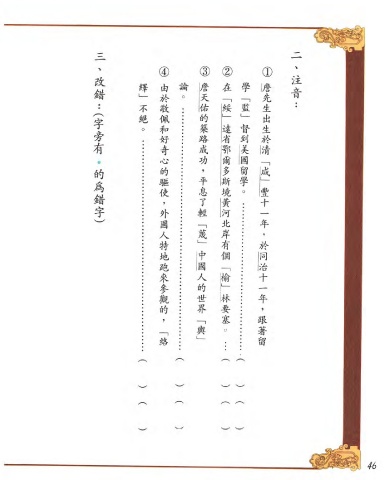 二、注音：
①詹先生出生於清「咸」豐十一年。於同治十一年，跟著留
學「監」督到美國留學。………………（　）（　）
②在「綏」遠省鄂爾多斯境黃河北岸有個「榆」林要塞。…（　）（　）
③詹天佑的築路成功，平息了輕「蔑」中國人的世界「輿」
論。………………（　）（　）
④由於敬佩和好奇心的驅使，外國人特地跑來參觀的，「絡
繹」不絕。………………（　）（　）
三、改錯：（字旁有•的為錯字）
46